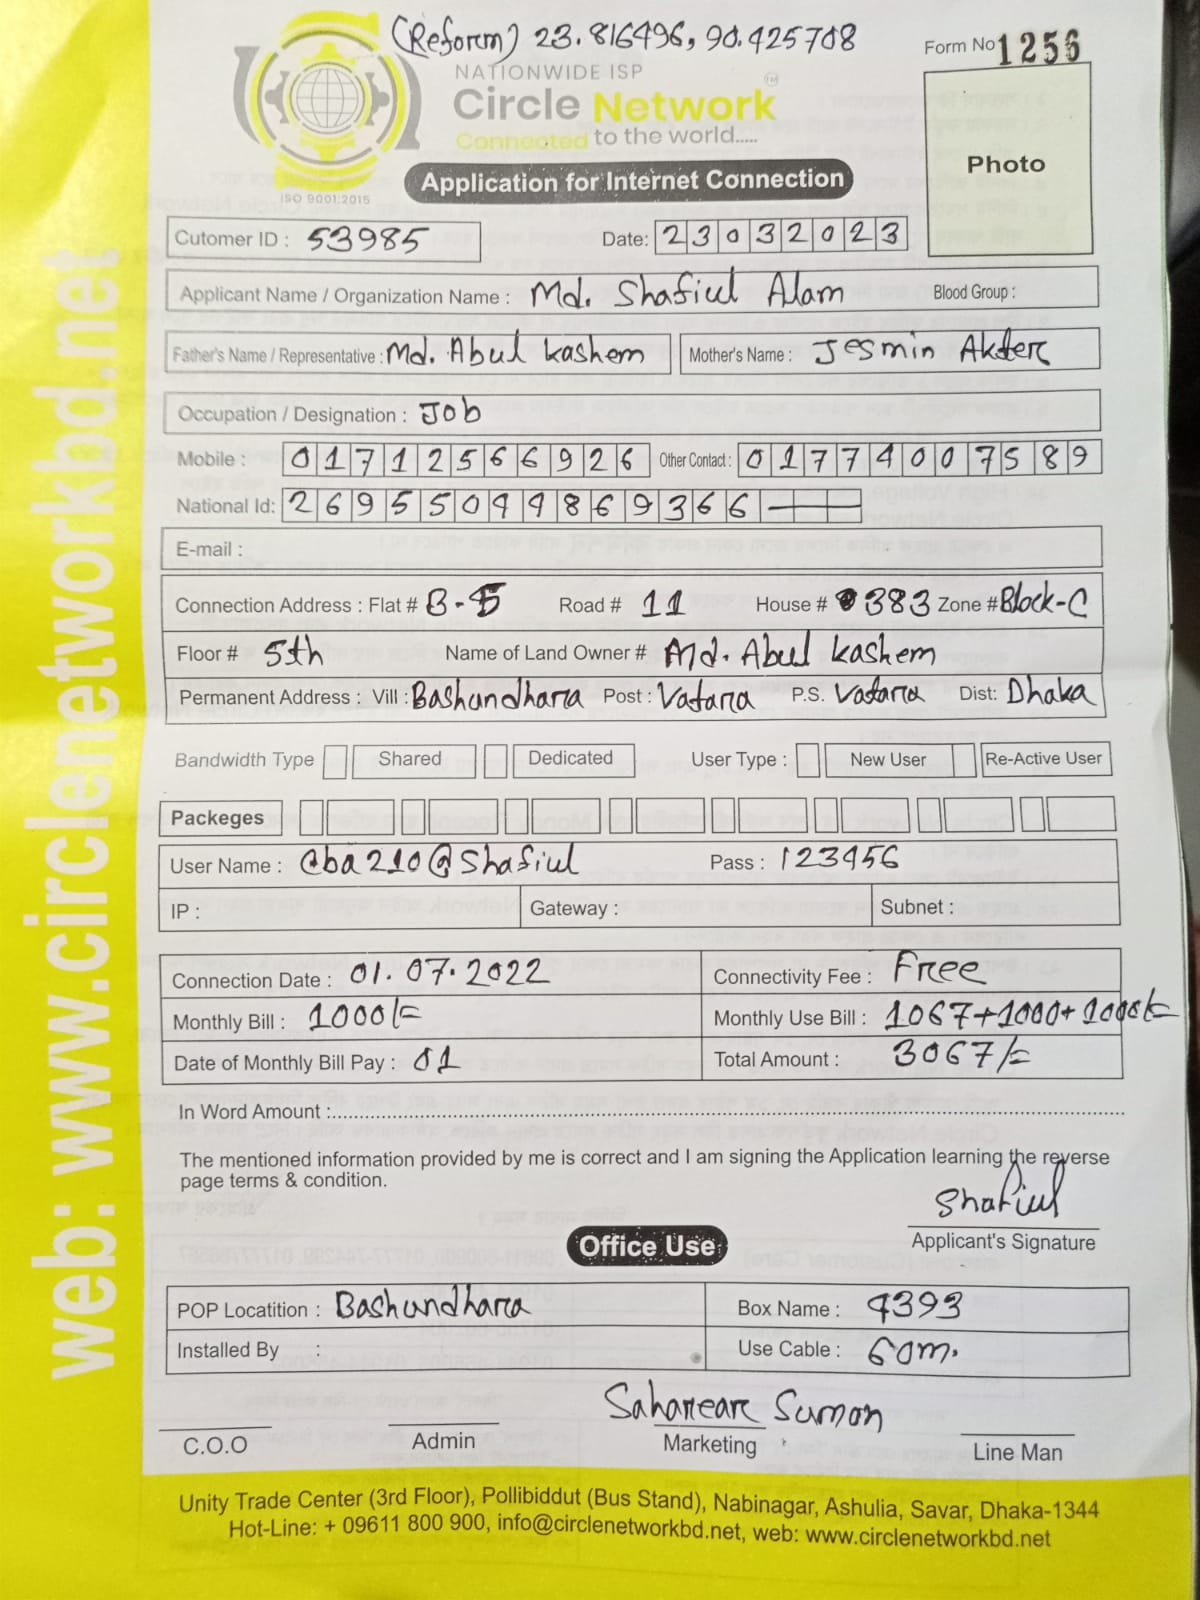 (Reform) 23.816496, 90.425708
Form No 1256
NATIONWIDE ISP
Circle Network
TM
Connected to the world.....
ISO 9001:2015
Application for Internet Connection
Photo
Cutomer ID : 53985
Date: 23032023
Applicant Name / Organization Name : Md. Shafiul Alam Blood Group :
Father's Name / Representative : Md. Abul Kashem Mother's Name : Jesmin Akter
Occupation / Designation : Job
Mobile : 01712566926 Other Contact : 01774007589
National Id: 2695504498693 66
E-mail :
Connection Address : Flat # B-5 Road # 11 House # 383 Zone # Block-C
Floor # 5th Name of Land Owner # Md. Abul Kashem
Permanent Address : Vill : Bashundhara Post : Vatara P.S. Vatara Dist: Dhaka
Bandwidth Type Shared Dedicated User Type : New User Re-Active User
Packeges
User Name : Cba210@Shafiul Pass : 123456
IP : Gateway : Subnet :
Connection Date : 01.07.2022 Connectivity Fee : Free
Monthly Bill : 1000/= Monthly Use Bill : 1067+1000+1000/=
Date of Monthly Bill Pay : 01 Total Amount : 3067/=
In Word Amount :
The mentioned information provided by me is correct and I am signing the Application learning the reverse
page terms & condition.
Shafiul
Applicant's Signature
Office Use
POP Locatition : Bashundhara Box Name : 4393
Installed By : Use Cable : 60m.
Saharear Sumon
C.O.O Admin Marketing Line Man
Unity Trade Center (3rd Floor), Pollibiddut (Bus Stand), Nabinagar, Ashulia, Savar, Dhaka-1344
Hot-Line: + 09611 800 900, info@circlenetworkbd.net, web: www.circlenetworkbd.net
web: www.circlenetworkbd.net